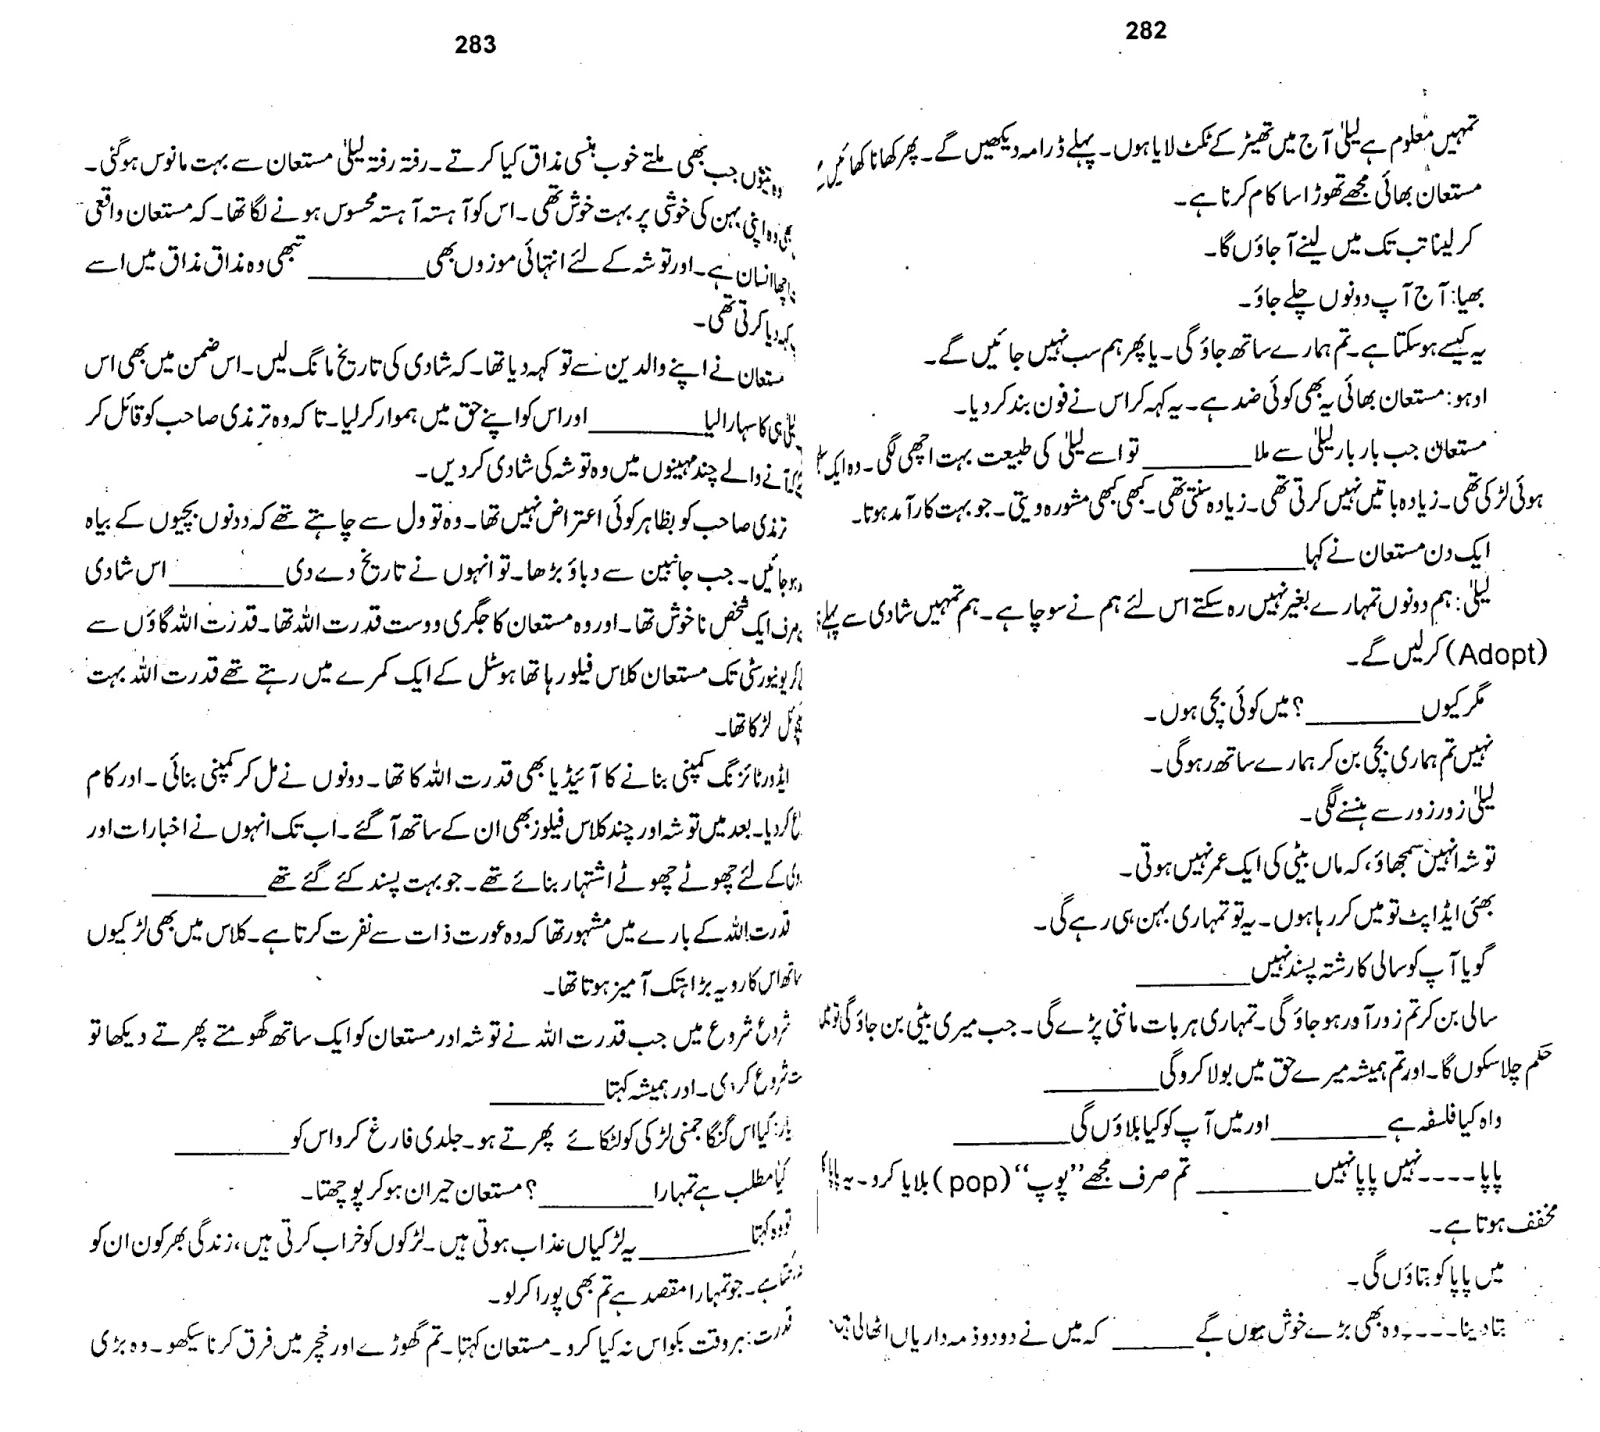 282
تمہیں معلوم ہے لیلیٰ آج میں تھیڑ کے ٹکٹ لایا ہوں۔ پہلے ڈرامہ دیکھیں گے۔ پھر کھانا کھائیں
مستعان بھائی مجھے تھوڑا سا کام کرنا ہے۔
کر لینا تب تک میں لینے آ جاؤں گا۔
بھیا: آج آپ دونوں چلے جاؤ۔
یہ کیسے ہو سکتا ہے۔ تم ہمارے ساتھ جاؤ گی۔ یا پھر ہم سب نہیں جائیں گے۔
اوہو: مستعان بھائی یہ بھی کوئی ضد ہے۔ یہ کہہ کر اس نے فون بند کر دیا۔
مستعان جب بار بار لیلیٰ سے ملا ________ تو اسے لیلیٰ کی طبیعت بہت اچھی لگی۔ وہ ایک
ہوئی لڑکی تھی۔ زیادہ باتیں نہیں کرتی تھی۔ زیادہ سنتی تھی۔ کبھی کبھی مشورہ دیتی۔ جو بہت کارآمد ہوتا۔
ایک دن مستعان نے کہا ________
لیلیٰ: ہم دونوں تمہارے بغیر نہیں رہ سکتے اس لئے ہم نے سوچا ہے۔ ہم تمہیں شادی سے پہلے
(Adopt) کر لیں گے۔
مگر کیوں ________ ؟ میں کوئی بچی ہوں۔
نہیں تم ہماری بچی بن کر ہمارے ساتھ رہو گی۔
لیلیٰ زور زور سے ہنسنے لگی۔
توشہ انہیں سمجھاؤ، کہ ماں بیٹی کی ایک عمر نہیں ہوتی۔
بھئی ایڈاپٹ تو میں کر رہا ہوں۔ یہ تو تمہاری بہن ہی رہے گی۔
گویا آپ کو سالی کا رشتہ پسند نہیں ________
سالی بن کر تم زور آور ہو جاؤ گی۔ تمہاری ہر بات ماننی پڑے گی۔ جب میری بیٹی بن جاؤ گی تو میں
حکم چلا سکوں گا۔ اور تم ہمیشہ میرے حق میں بولا کرو گی ________
واہ کیا فلسفہ ہے ________ اور میں آپ کو کیا بلاؤں گی ________
پاپا ---- نہیں پاپا نہیں ________ تم صرف مجھے ”پوپ“ (pop) بلایا کرو۔ یہ پاپا کا
مخفف ہوتا ہے۔
میں پاپا کو بتاؤں گی۔
بتا دینا ---- وہ بھی بڑے خوش ہوں گے ______ کہ میں نے دو دو ذمہ داریاں اٹھا لی ہیں
283
وہ تینوں جب بھی ملتے خوب ہنسی مذاق کیا کرتے۔ رفتہ رفتہ لیلیٰ مستعان سے بہت مانوس ہو گئی۔
وہ اپنی بہن کی خوشی پر بہت خوش تھی۔ اس کو آہستہ آہستہ محسوس ہونے لگا تھا۔ کہ مستعان واقعی
اچھا انسان ہے۔ اور توشہ کے لئے انتہائی موزوں بھی ________ تبھی وہ مذاق مذاق میں اسے
کہہ دیا کرتی تھی۔
مستعان نے اپنے والدین سے تو کہہ دیا تھا۔ کہ شادی کی تاریخ مانگ لیں۔ اس ضمن میں بھی اس
لیلیٰ ہی کا سہارا لیا ________ اور اس کو اپنے حق میں ہموار کر لیا۔ تا کہ وہ ترمذی صاحب کو قائل کر
آنے والے چند مہینوں میں وہ توشہ کی شادی کر دیں۔
ترمذی صاحب کو بظاہر کوئی اعتراض نہیں تھا۔ وہ تو دل سے چاہتے تھے کہ دونوں بچیوں کے بیاہ
ہو جائیں۔ جب جانبین سے دباؤ بڑھا۔ تو انہوں نے تاریخ دے دی ________ اس شادی
صرف ایک شخص نا خوش تھا۔ اور وہ مستعان کا جگری دوست قدرت اللہ تھا۔ قدرت اللہ گاؤں سے
یونیورسٹی تک مستعان کلاس فیلو رہا تھا ہوسٹل کے ایک کمرے میں رہتے تھے قدرت اللہ بہت
لڑکا تھا۔
ایڈورٹائزنگ کمپنی بنانے کا آئیڈیا بھی قدرت اللہ کا تھا۔ دونوں نے مل کر کمپنی بنائی۔ اور کام
کر دیا۔ بعد میں توشہ اور چند کلاس فیلوز بھی ان کے ساتھ آ گئے۔ اب تک انہوں نے اخبارات اور
کے لئے چھوٹے چھوٹے اشتہار بنائے تھے۔ جو بہت پسند کئے گئے تھے ________
قدرت اللہ کے بارے میں مشہور تھا کہ وہ عورت ذات سے نفرت کرتا ہے۔ کلاس میں بھی لڑکیوں
ساتھ اس کا رویہ بڑا ہتک آمیز ہوتا تھا۔
شروع شروع میں جب قدرت اللہ نے توشہ اور مستعان کو ایک ساتھ گھومتے پھرتے دیکھا تو
شروع کر دی۔ اور ہمیشہ کہتا ________
یار: کیا اس گنگا جمنی لڑکی کو لٹکائے پھرتے ہو۔ جلدی فارغ کرو اس کو ________
کیا مطلب ہے تمہارا ________ ؟ مستعان حیران ہو کر پوچھتا۔
تو وہ کہتا ________ یہ لڑکیاں عذاب ہوتی ہیں۔ لڑکوں کو خراب کرتی ہیں، زندگی بھر کون ان کو
ہے۔ جو تمہارا مقصد ہے تم بھی پورا کر لو۔
قدرت: ہر وقت بکواس نہ کیا کرو۔ مستعان کہتا۔ تم گھوڑے اور خچر میں فرق کرنا سیکھو۔ وہ بڑی